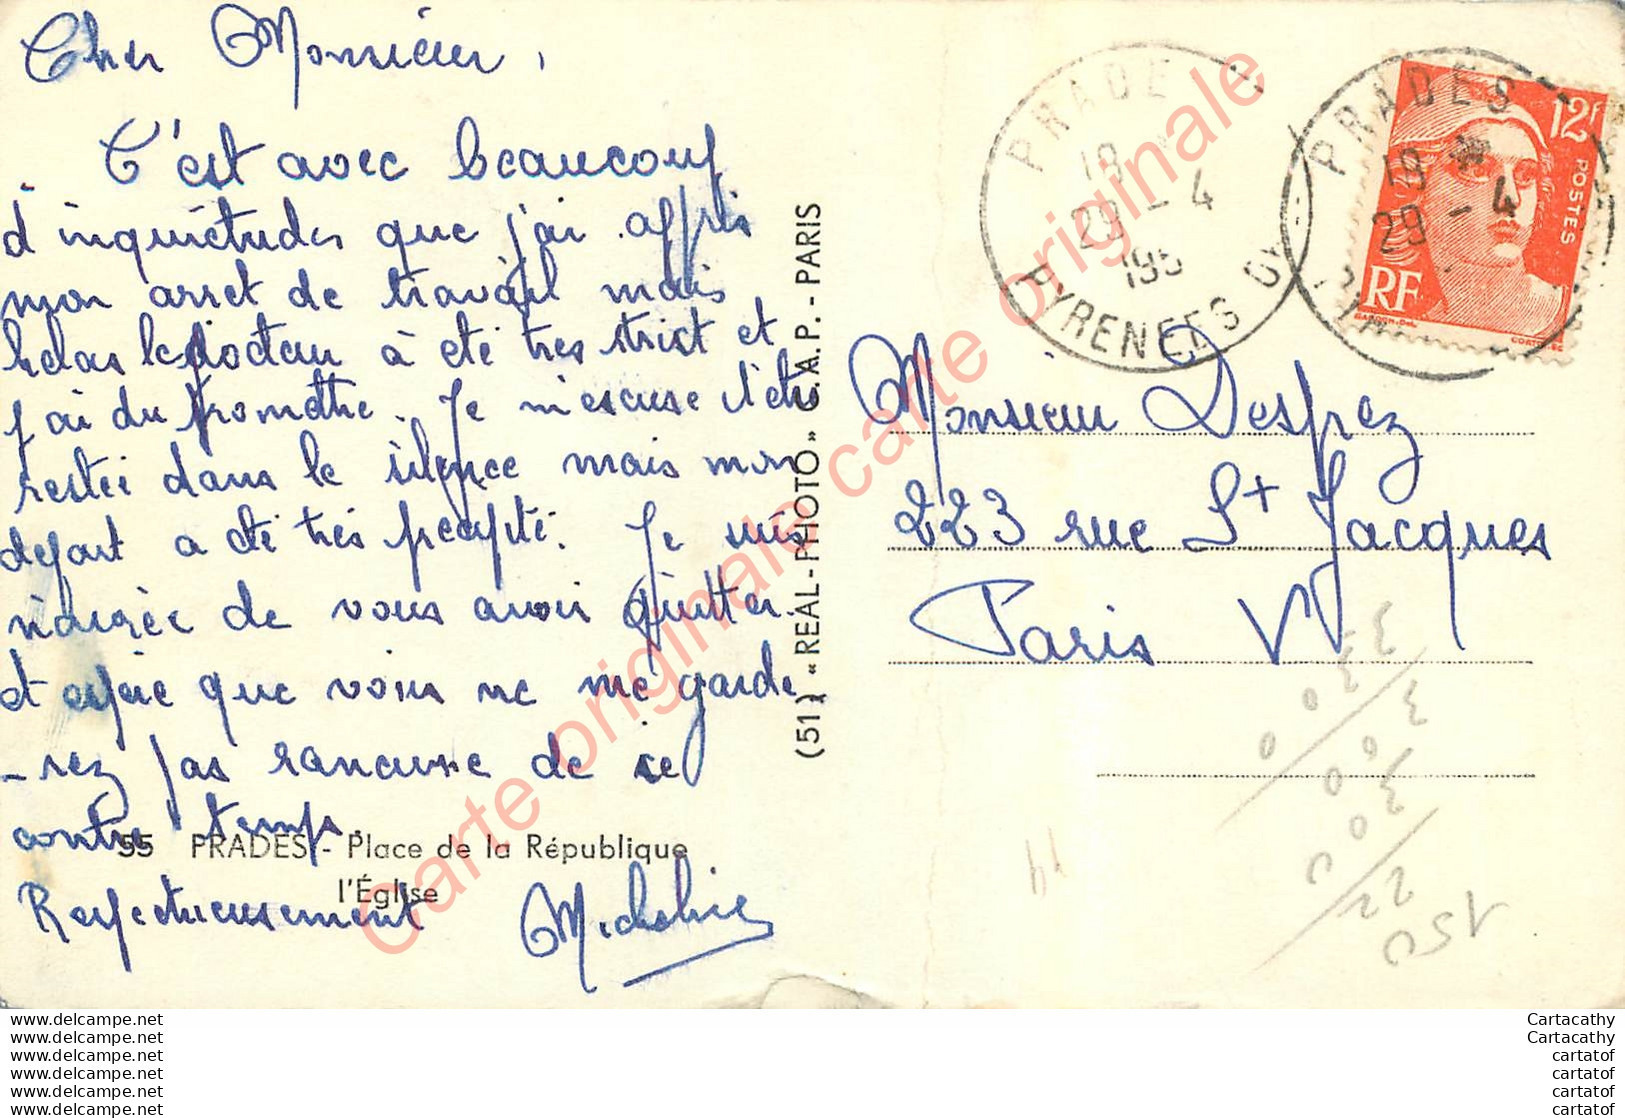 Cher Monsieur,
C'est avec beaucoup
d'inquiétudes que j'ai appris
mon arret de travail mais
helas le docteur à été tres strict et
j'ai du promettre. Je m'escuse d'etre
restée dans le silence mais mon
depart a été très précipité. Je suis
navrée de vous avoir quitter
et espère que vous ne me garde
-rez pas rancune de ce
contre temps.
Respectueusement
55 PRADES - Place de la République
l'Église
(51) « REAL-PHOTO » C.A.P. - PARIS
PRADES
19
29 - 4
195
PYRENEES OR
PRADES
19
29 - 4
12F
POSTES
RF
Monsieur Desprez
223 rue St Jacques
Paris V
Carte originale carte originale carte originale
www.delcampe.net
www.delcampe.net
www.delcampe.net
www.delcampe.net
www.delcampe.net
www.delcampe.net
Cartacathy
Cartacathy
cartatof
cartatof
cartatof
cartatof